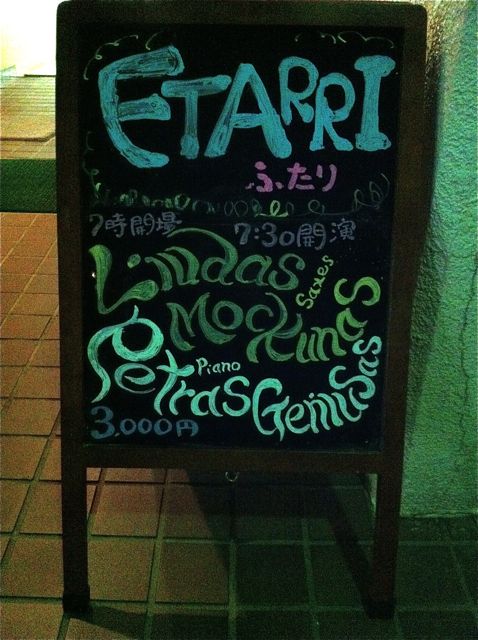 ETARRI
ふたり
7時開場 7:30開演
Lindas
Saxes
Mockunas
Petras
Piano
Geniusas
3,000円